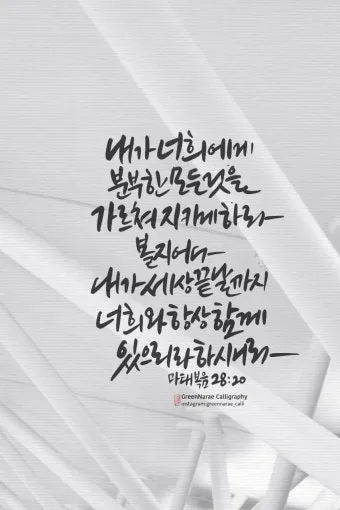 내가 너희에게
분부한 모든 것을
가르쳐 지키게 하라
볼지어다
내가 세상 끝날까지
너희와 항상 함께
있으리라 하시니라
마태복음 28:20
GreenNarae Calligraphy
instagram:greennarae_calli